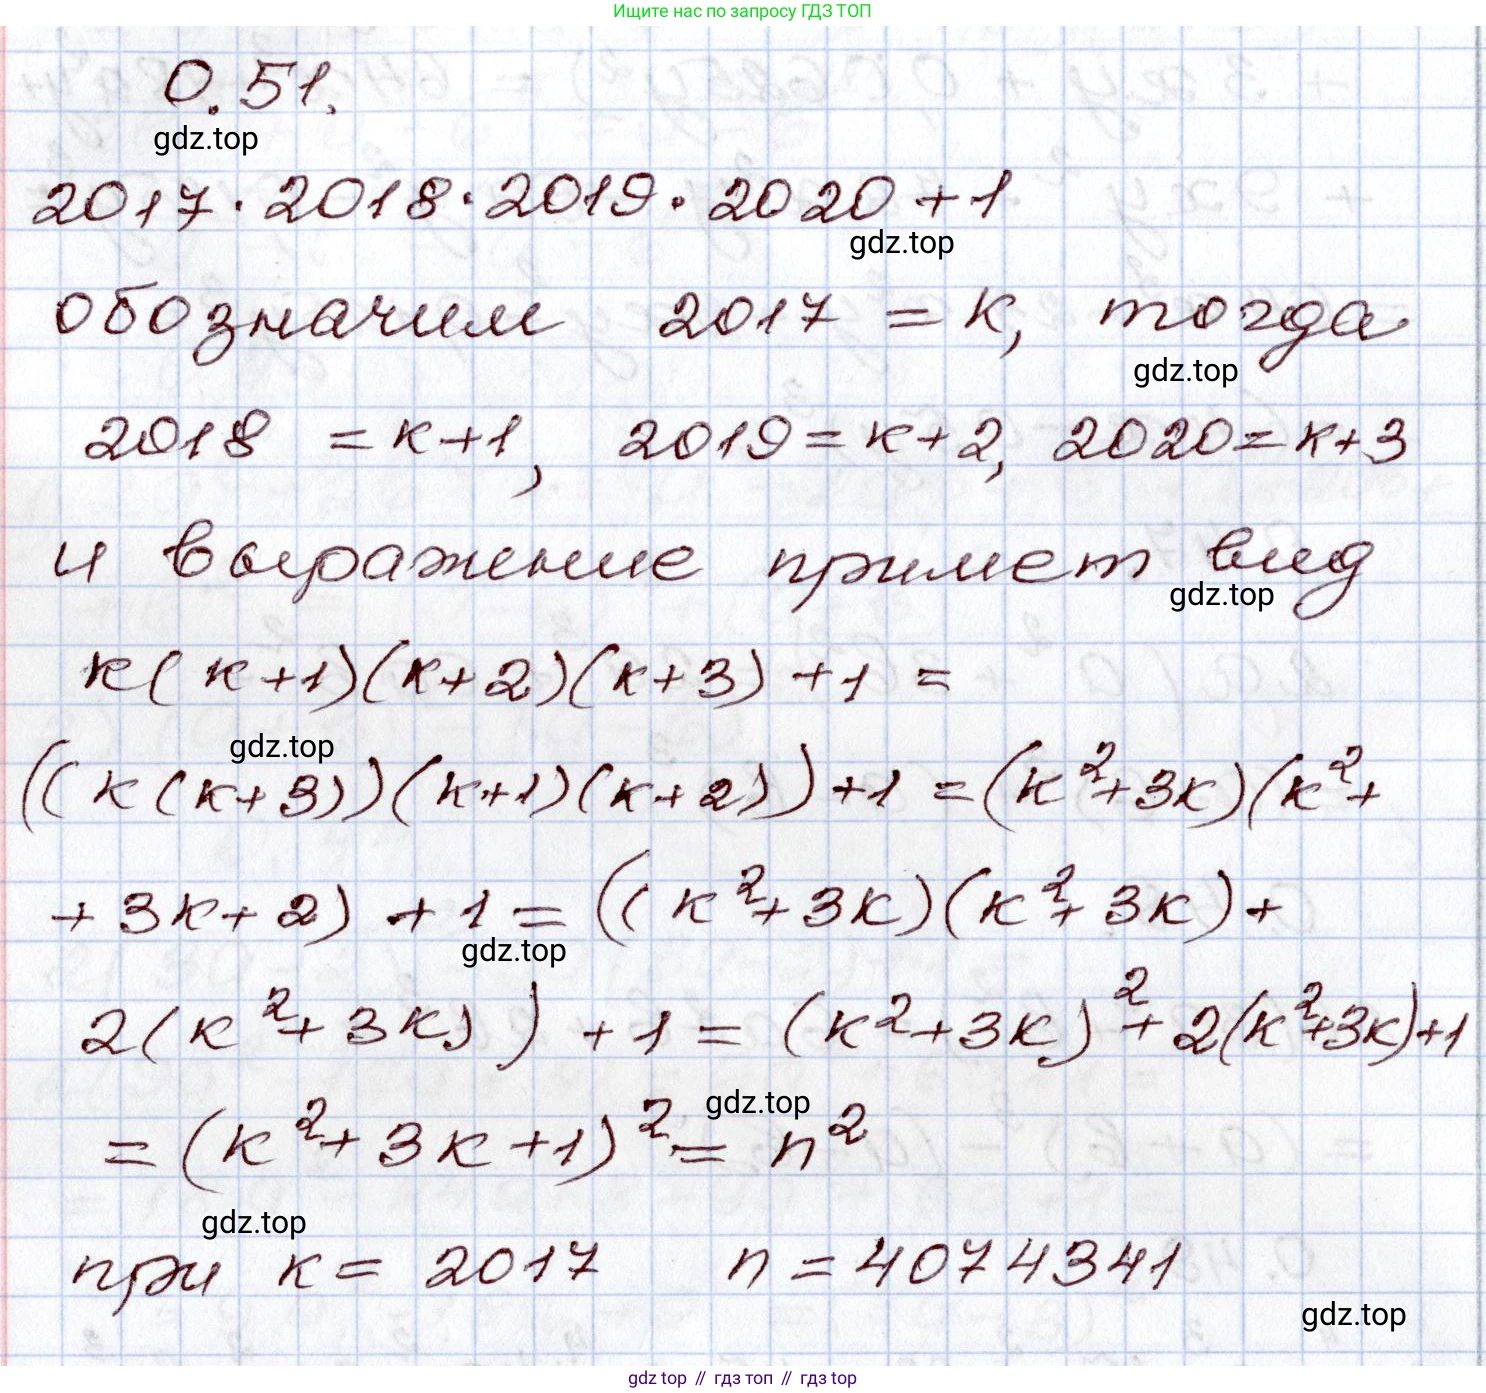 Ищите нас по запросу ГДЗ ТОП
0.51.
gdz.top
2017·2018·2019·2020+1
gdz.top
обозначим 2017 = к, тогда
gdz.top
2018 = к+1, 2019 = к+2, 2020 = к+3
и выражение примет вид
gdz.top
к(к+1)(к+2)(к+3)+1 =
gdz.top
((к(к+3))(к+1)(к+2))+1 = (к²+3к)(к²+
+3к+2)+1 = ((к²+3к)(к²+3к)+
gdz.top
2(к²+3к))+1 = (к²+3к)²+2(к²+3к)+1
gdz.top
= (к²+3к+1)² = n²
gdz.top
при к = 2017 n = 4074341
gdz.top
gdz top // гдз топ // гдз top